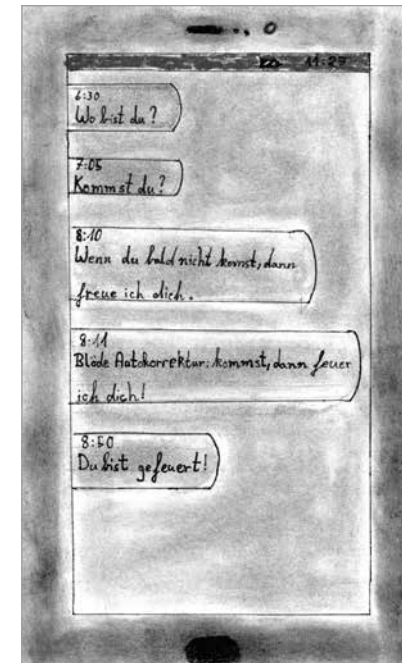 11:27
6:30
Wo bist du?
7:05
Kommst du?
8:10
Wenn du bald nicht komst, dann
freue ich dich.
8:11
Blöde Autokorrektur: kommst, dann feuer
ich dich!
8:50
Du bist gefeuert!